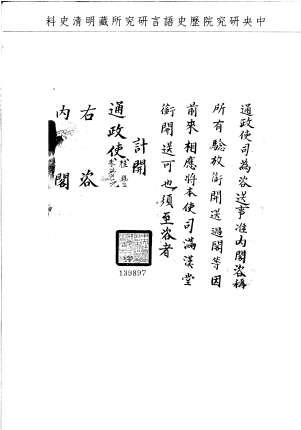 中央研究院歷史語言研究所藏明清史料
通政使司為咨送事准內閣咨稱
所有驗放銜開送過閣等因
前來相應將本使司滿漢堂
銜開送可也須至咨者
計開
通政使
右咨
內閣
139897